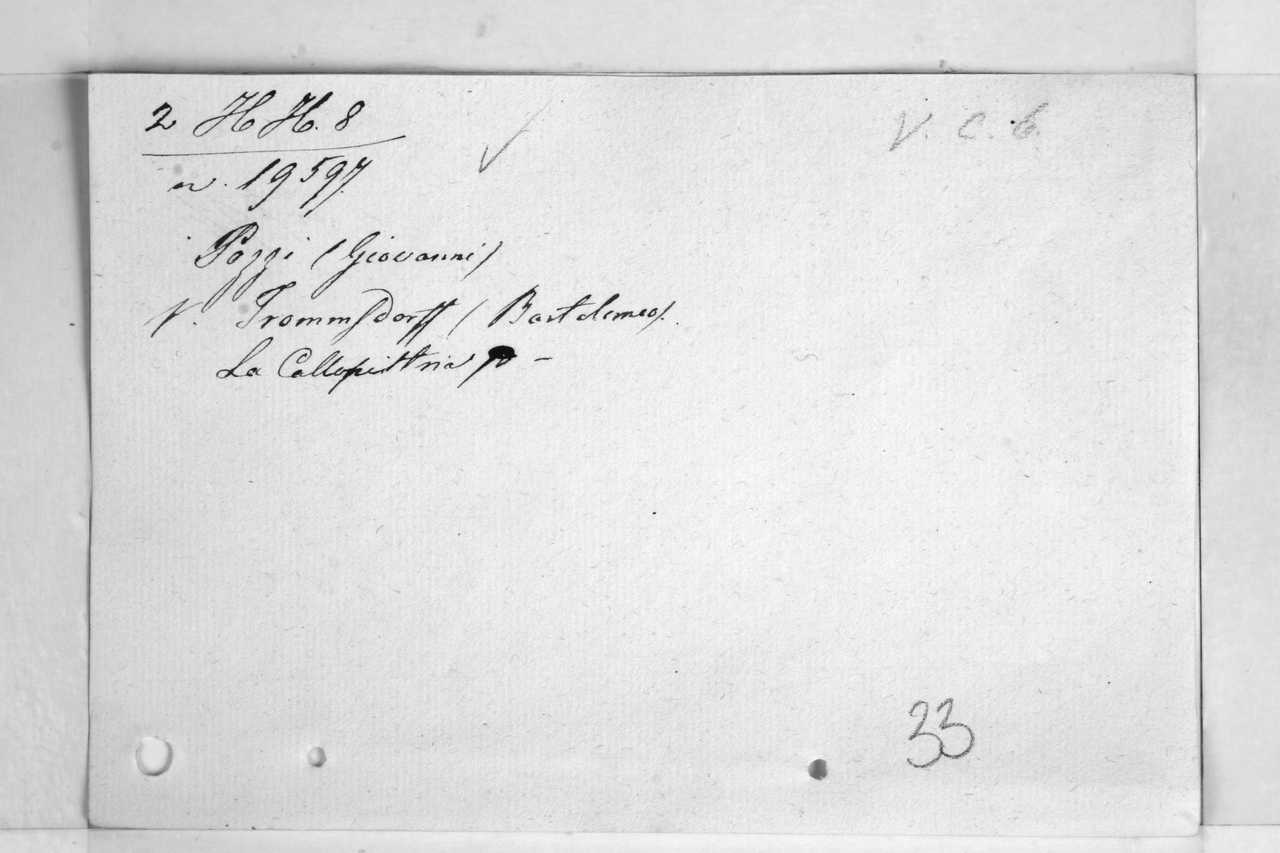 2 HH. 8
V. C. 6.
n. 19597
Pozzi (Giovanni)
V. Trommsdorff (Bartolomeo).
La Callopistria
33